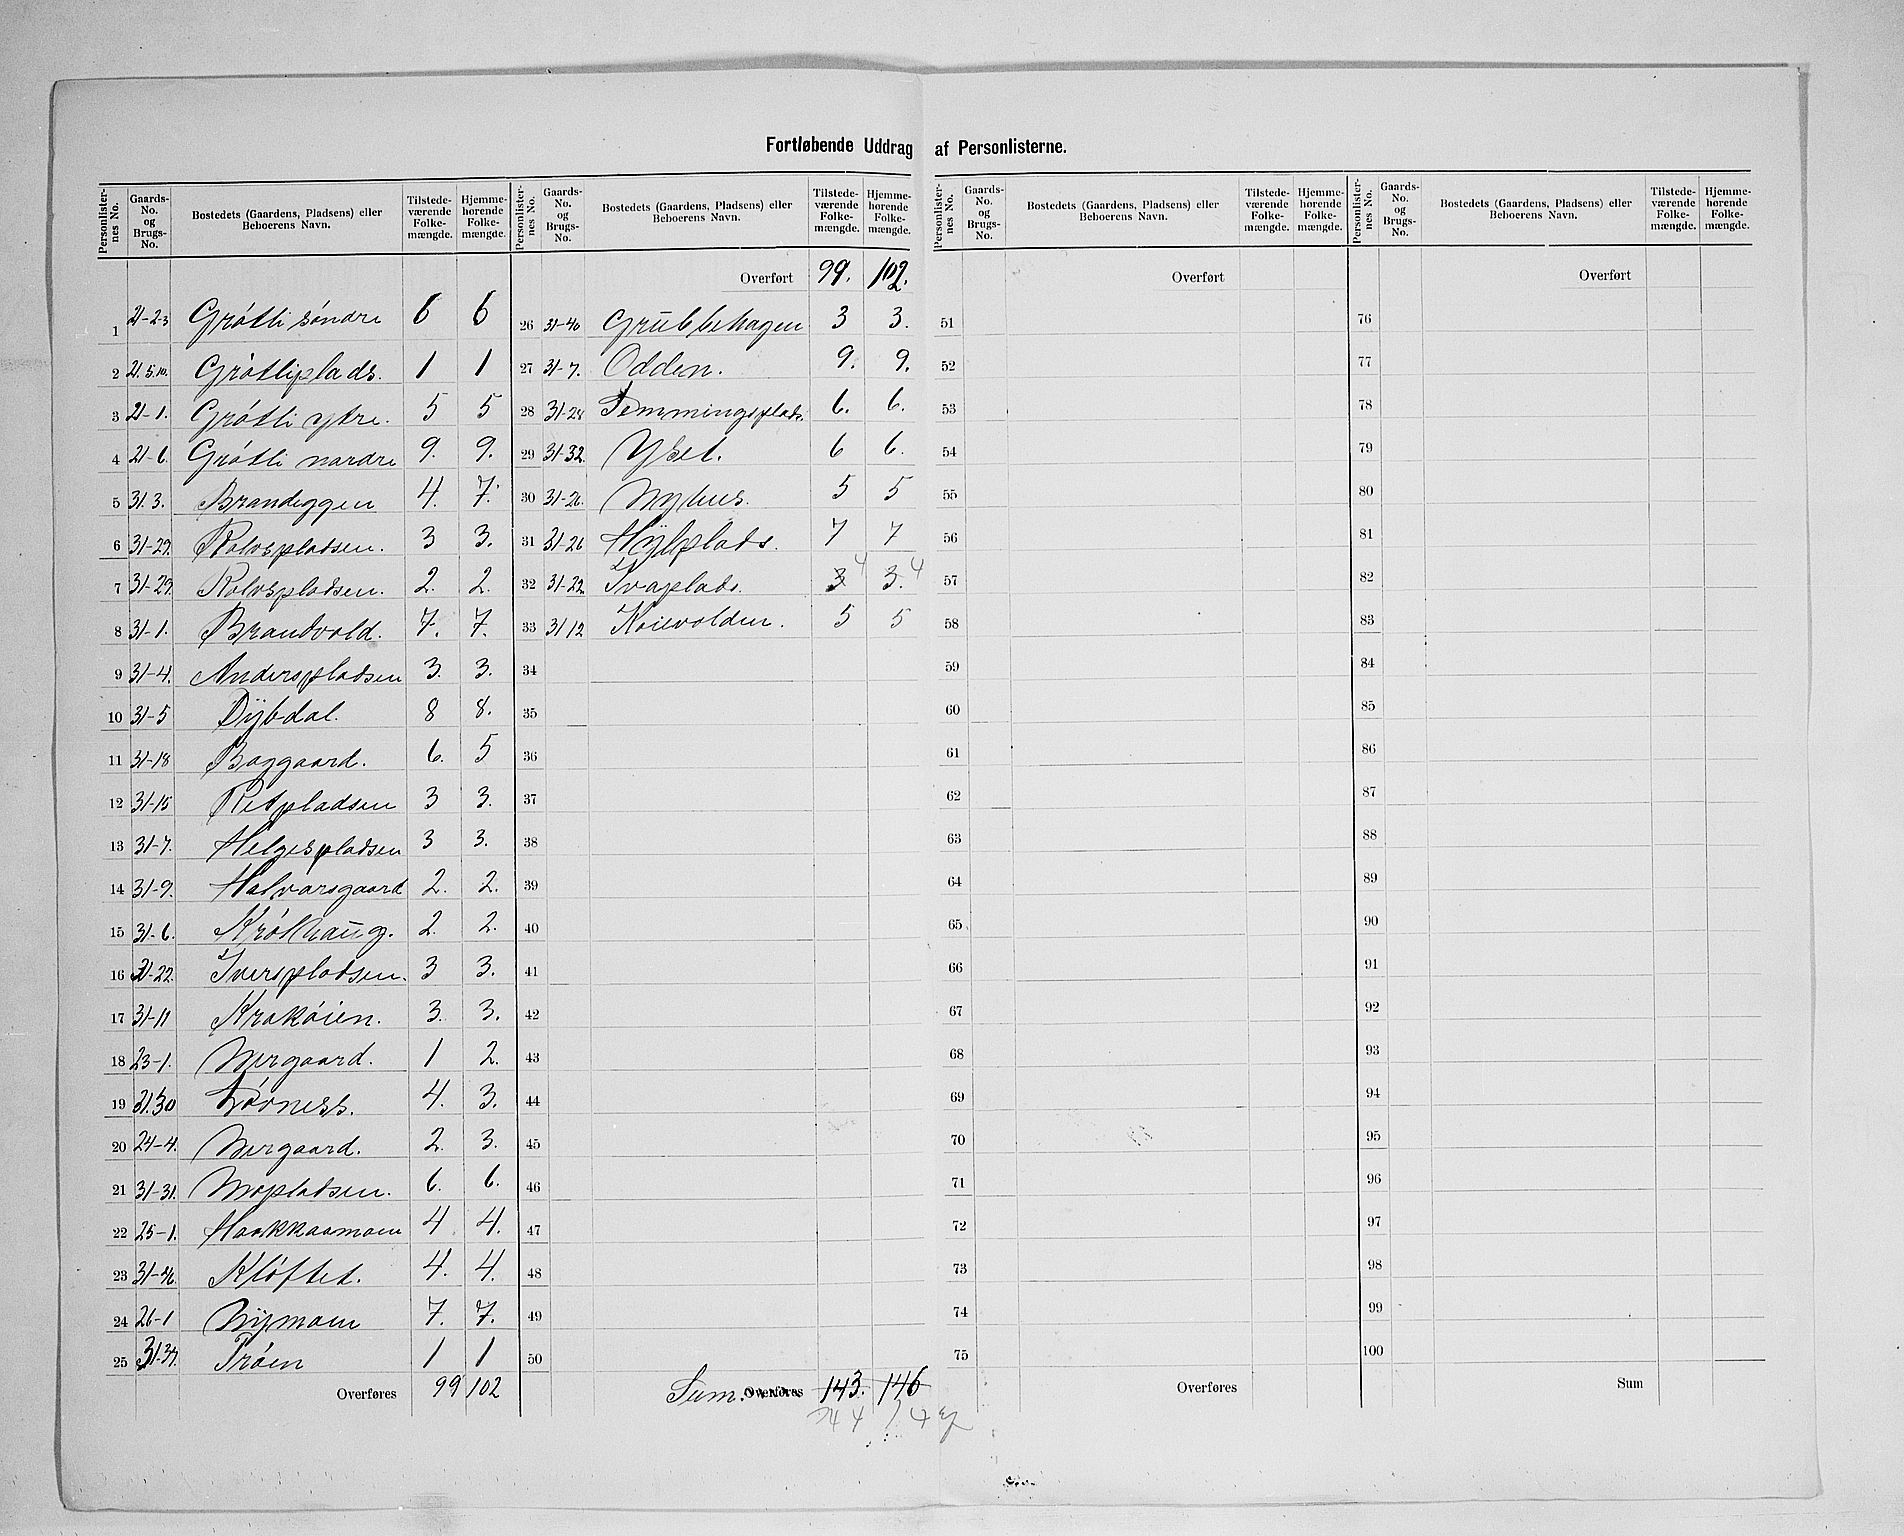 Fortløbende Uddrag af Personlisterne.
Personlisternes No. Gaards-No. og Brugs-No. Bostedets (Gaardens, Pladsens) eller Beboerens Navn. Tilstedeværende Folkemængde. Hjemmehørende Folkemængde.
1 21-2-3 Grótli söndre 6 6
2 21.5.10. Grótliplads. 1 1
3 21-1. Grótli ytre. 5 5
4 21-6. Grótli nordre 9. 9.
5 31.3. Brandeggen 4. 7.
6 31-29. Rolvspladsen. 3 3.
7 31-29. Rolvspladsen. 2. 2.
8 31-1. Brandvold. 7. 7.
9 31-4. Anderspladsen 3. 3.
10 31-5 Dÿbdal. 8 8.
11 31-18 Baggaard. 6. 5
12 31-15 Retpladsen 3 3.
13 31-7. Helgespladsen 3 3.
14 31-9. Halvarsgaard 2. 2.
15 31-6. Krókhaug. 2. 2.
16 31-22. Iverspladsen. 3 3.
17 31-11 Krokóien. 3. 3.
18 23-1. Nergaard. 1 2.
19 21.30 Lóvness. 4. 3.
20 24-4. Nergaard. 2. 3.
21 31-31. Mopladsen. 6. 6.
22 25-1. Haakkaamoen 4 4.
23 31-46. Klóftet. 4. 4.
24 26-1 Nÿmoen 7. 7.
25 31-37. Tróen 1 1
Overføres 99 102
Personlisternes No. Gaards-No. og Brugs-No. Bostedets (Gaardens, Pladsens) eller Beboerens Navn. Tilstedeværende Folkemængde. Hjemmehørende Folkemængde.
Overført 99. 102.
26 31-40 Grubbehagen 3 3.
27 31-7. Odden. 9. 9.
28 31-28 Temmingsplads. 6. 6.
29 31-32. Yset. 6 6.
30 31-26. Nyhus. 5 5
31 31-26 Hÿlplads. 7 7
32 31-22 Ivaplads. 3 4 3. 4
33 31 12 Koievolden. 5 5
34
35
36
37
38
39
40
41
42
43
44
45
46
47
48
49
50
Sum. Overføres 143. 146
144 147
Personlisternes No. Gaards-No. og Brugs-No. Bostedets (Gaardens, Pladsens) eller Beboerens Navn. Tilstedeværende Folkemængde. Hjemmehørende Folkemængde.
Overført
51
52
53
54
55
56
57
58
59
60
61
62
63
64
65
66
67
68
69
70
71
72
73
74
75
Overføres
Personlisternes No. Gaards-No. og Brugs-No. Bostedets (Gaardens, Pladsens) eller Beboerens Navn. Tilstedeværende Folkemængde. Hjemmehørende Folkemængde.
Overført
76
77
78
79
80
81
82
83
84
85
86
87
88
89
90
91
92
93
94
95
96
97
98
99
100
Sum